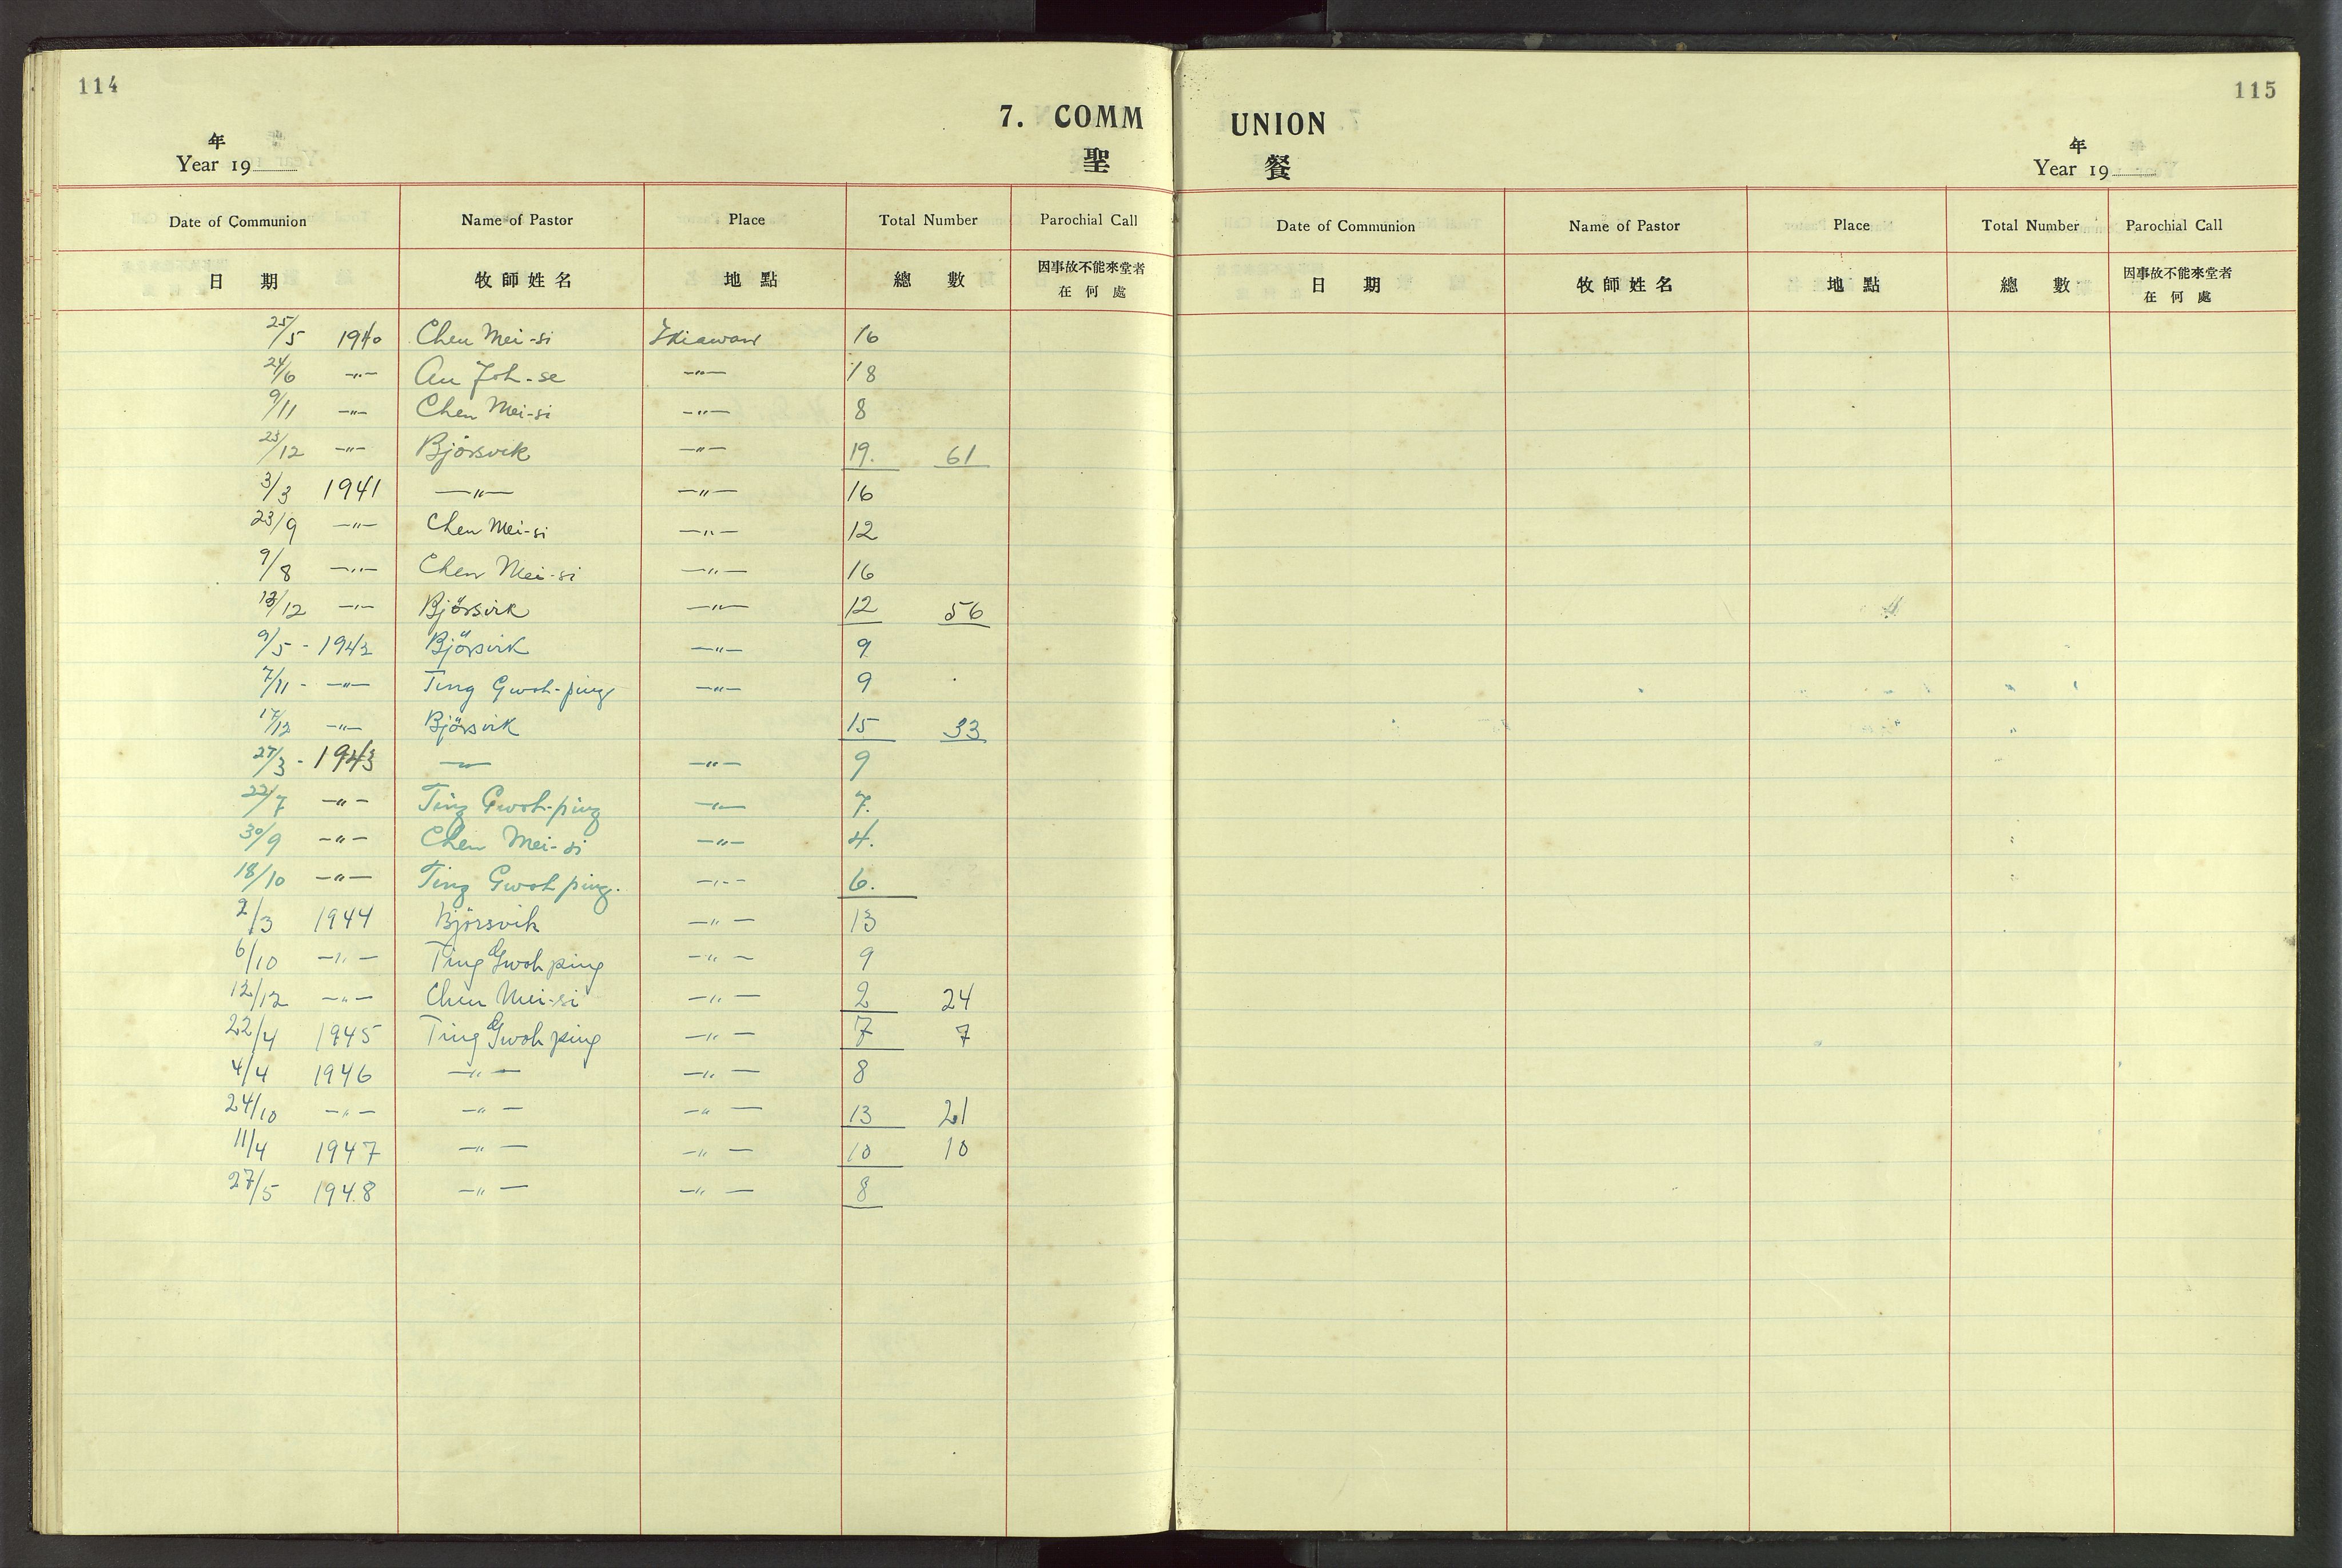 114
7. COMM
年
Year 19
聖
Date of Communion Name of Pastor Place Total Number Parochial Call
日 期 牧師姓名 地點 總數 因事故不能來堂者
在何處
25/5 1940 Chen Mei-si 16
24/6 -"- An Joh-se -"- 18
9/11 -"- Chen Mei-si -"- 8
23/12 -"- Björsvik -"- 19. 61
3/3 1941 -"- -"- 16
23/9 -"- Chen Mei-si -"- 12
9/8 -"- Chen Mei-si -"- 16
/12 -"- Björsvik -"- 12 56
9/5 - 1942 Björsvik -"- 9
7/11 - -"- Ting Gwoh-ping -"- 9
17/12 -"- Björsvik 15 33
27/3 - 1943 -"- -"- 9
22/7 -"- Ting Gwoh-ping -"- 7.
30/9 -"- Chen Mei-si -"- 4.
18/10 -"- Ting Gwoh ping. -"- 6.
2/3 1944 Björsvik -"- 13
6/10 -"- Ting Gwoh ping -"- 9
12/12 -"- Chen Mei-si -"- 2 24
22/4 1945 Ting Gwoh ping -"- 7 7
4/4 1946 -"- -"- 8
24/10 -"- -"- -"- 13 21
11/4 1947 -"- -"- 10 10
27/5 1948 -"- -"- 8
115
UNION
餐
年
Year 19
Date of Communion Name of Pastor Place Total Number Parochial Call
日 期 牧師姓名 地點 總數 因事故不能來堂者
在何處